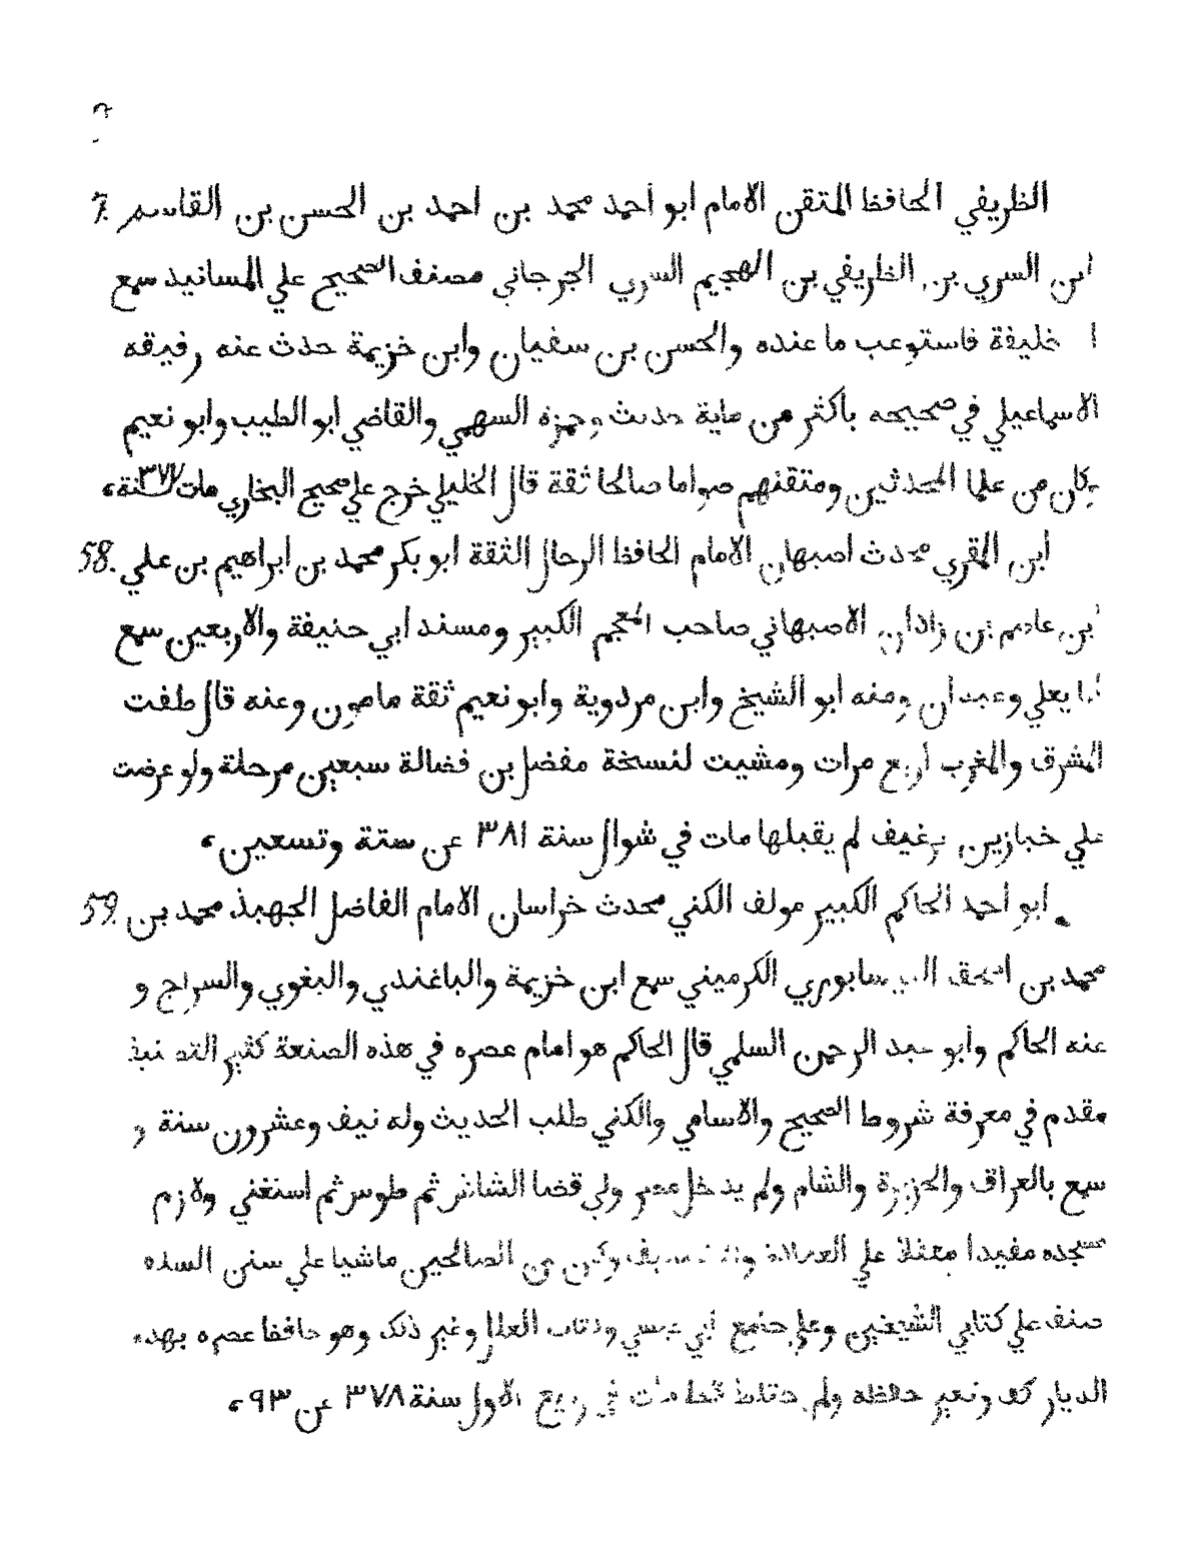 الظريفي الحافظ المتقن الامام ابو أحمد محمد بن احمد بن الحسن بن القاسم
ابن السري بن الظريفي بن الهجيم السري الجرجاني مصنف الصحيح علي المسانيد سمع
ا خليفة فاستوعب ما عنده والحسن بن سفيان وابن خزيمة حدث عنه رفيقه
الاسماعيلي في صحيحه باكثر من ماية حديث وحمزه السهمي والقاضي ابو الطيب وابو نعيم
وكان من علما المحدثين ومتقنهم صواما صالحا ثقة قال الخليلي خرج علي صحيح البخاري مات سنة ٣٧٧
58. ابن المقري محدث اصبهان الامام الحافظ الرحال الثقة ابو بكر محمد بن ابراهيم بن علي
بن عاصم بن زادان الاصبهاني صاحب المعجم الكبير ومسند ابي حنيفة والاربعين سمع
أبا يعلي وعبدان ومنه ابو الشيخ وابن مردوية وابو نعيم ثقة مامون وعنه قال طفت
المشرق والمغرب اربع مرات ومشيت لنسخة مفضل بن فضالة سبعين مرحلة ولو عرضت
علي خبازين برغيف لم يقبلها مات في شوال سنة ٣٨١ عن ستة وتسعين،
59. ابو أحمد الحاكم الكبير مولف الكني محدث خراسان الامام الفاضل الجهبذ محمد بن
محمد بن اسحق النيسابوري الكرميني سمع ابن خزيمة والباغندي والبغوي والسراج و
عنه الحاكم وأبو عبد الرحمن السلمي قال الحاكم هو امام عصره في هذه الصنعة كثير التصنيف
مقدم في معرفة شروط الصحيح والاسامي والكني طلب الحديث وله نيف وعشرون سنة و
سمع بالعراق والجزيرة والشام ولم يدخل مصر ولي قضا الشاش ثم طوس ثم استغني ولازم
مسجده مفيدا مقبلا علي العبادة والتصنيف وكان من الصالحين ماشيا علي سنن السلف
صنف علي كتابي الشيخين وعلي جامع أبي عيسي وكتاب العلل وغير ذلك وهو حافظ عصره بهذه
الديار كف وتغير حفظه ولم يختلط قط مات في ربيع الاول سنة ٣٧٨ عن ٩٣،